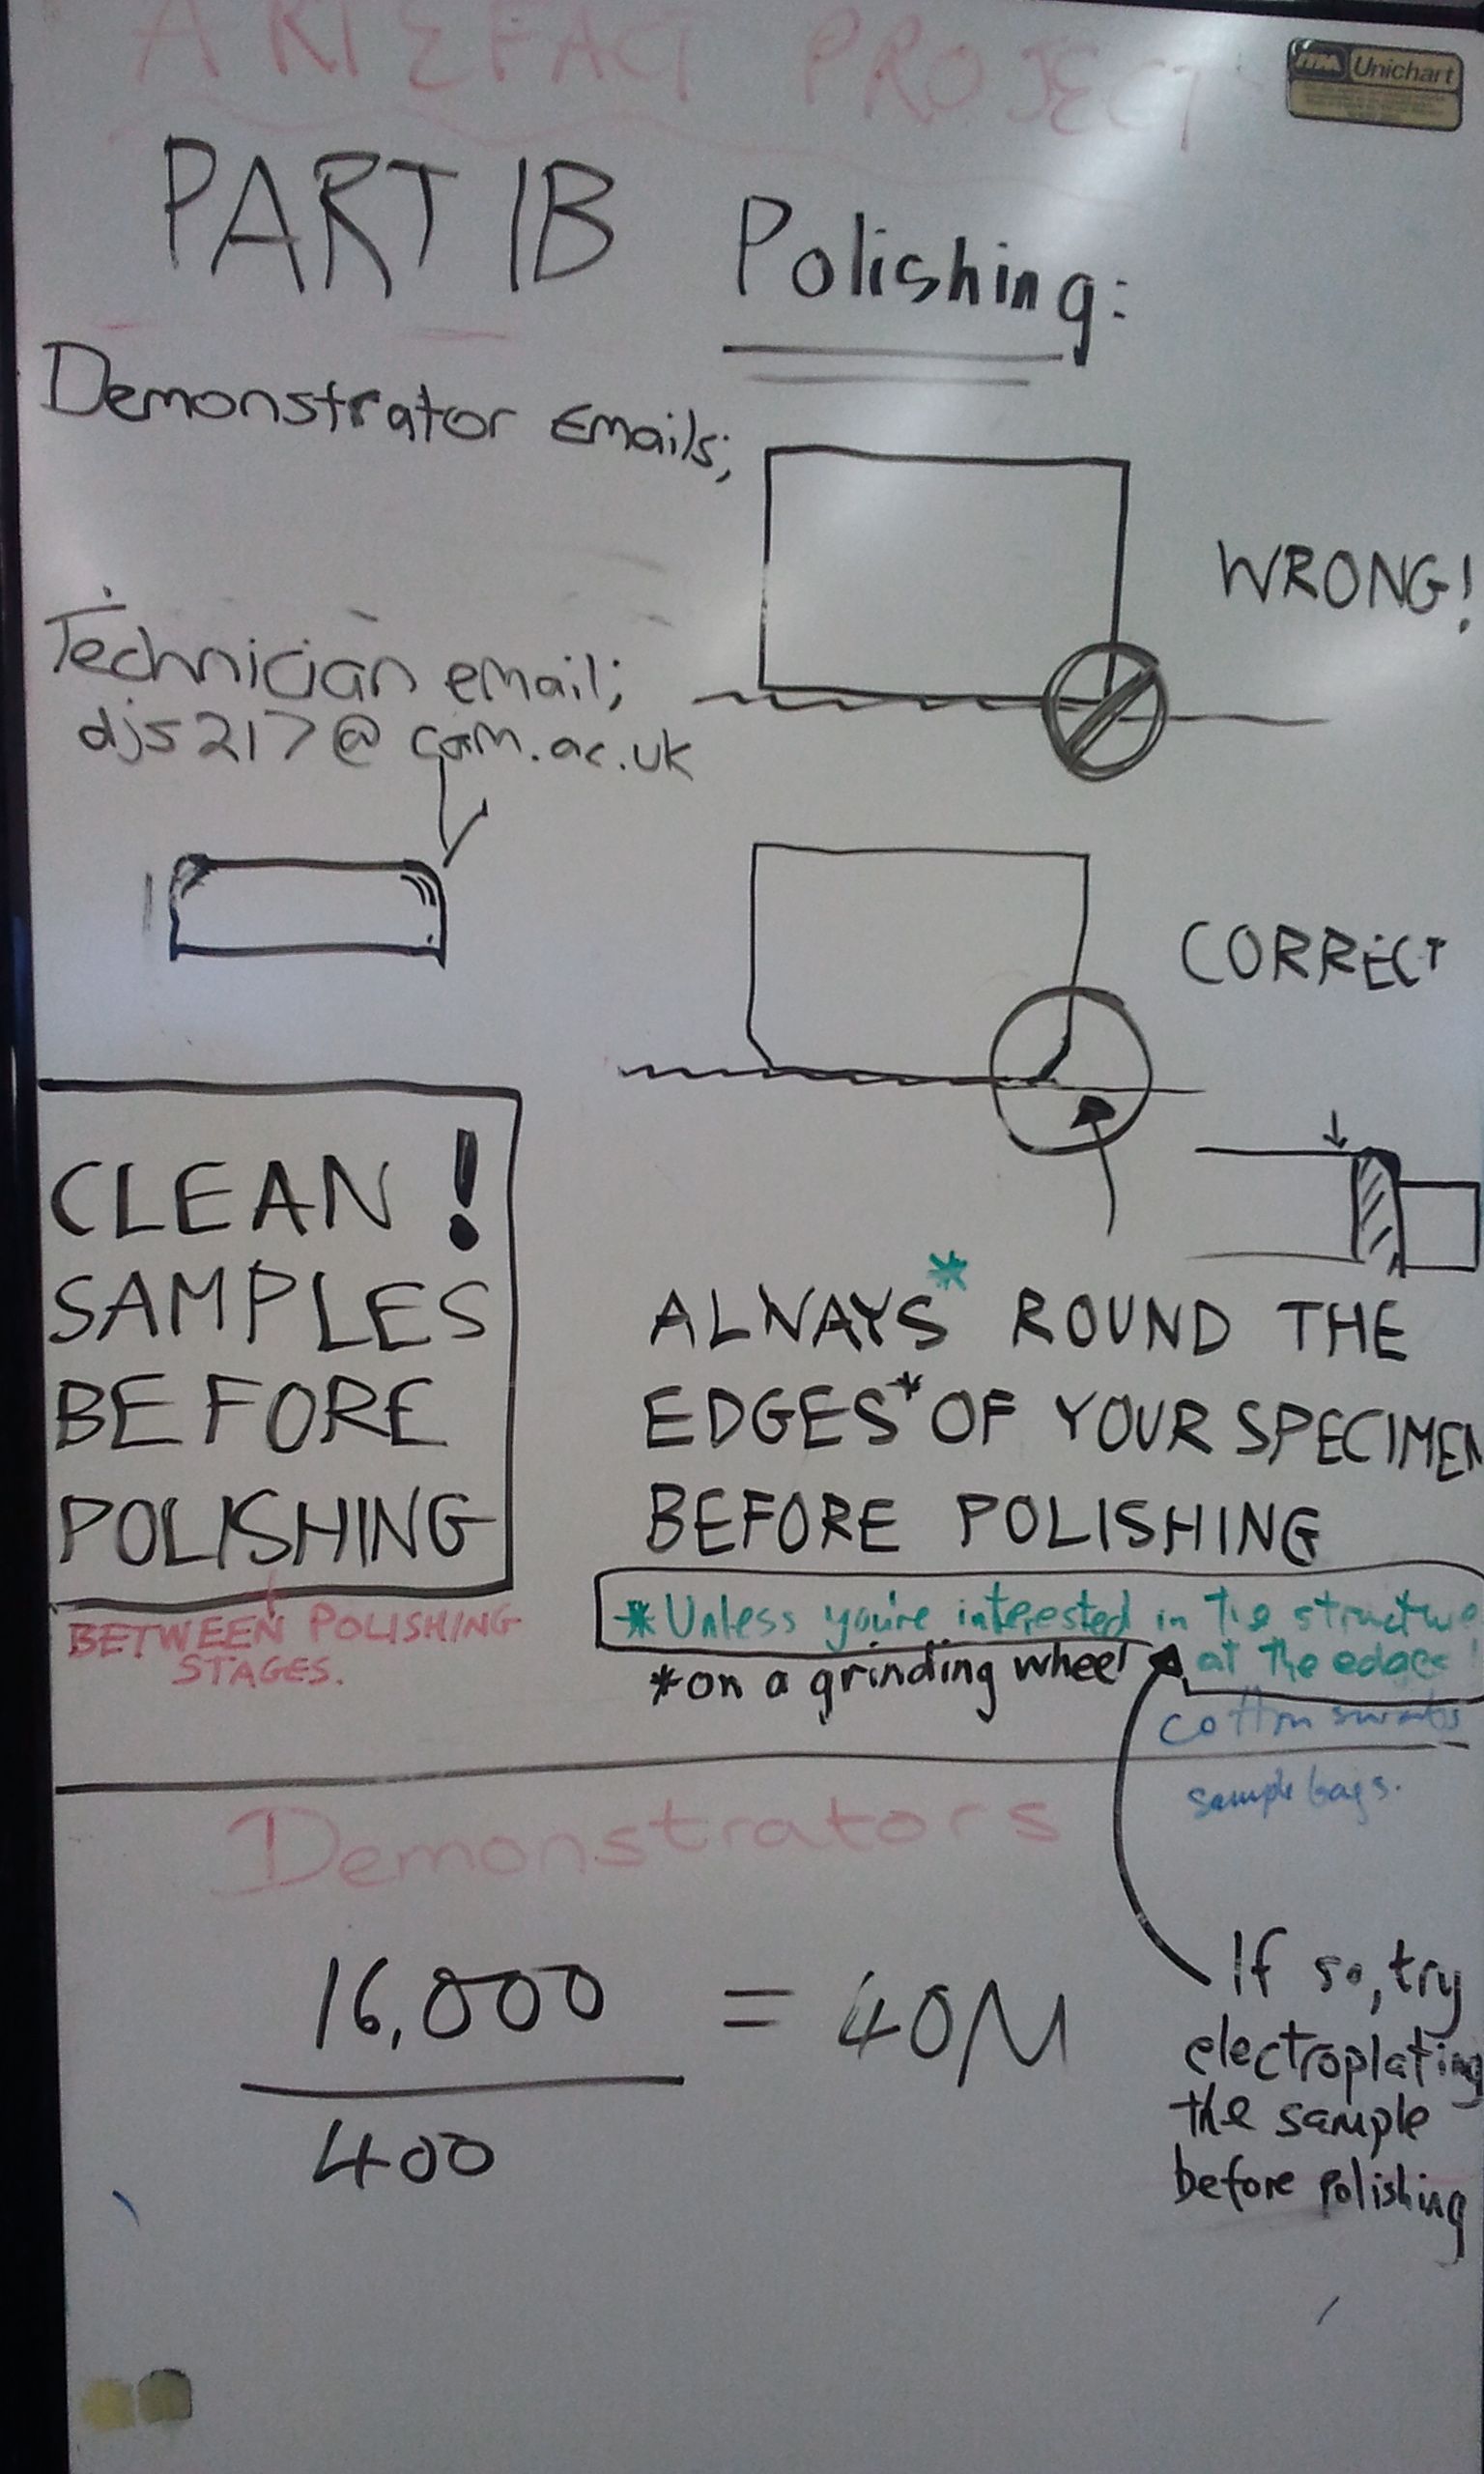 ARTEFACT PROJECT
Unichart
PART IB
Polishing:
Demonstrator Emails;
Technician email;
djs217@cam.ac.uk
WRONG!
CORRECT
CLEAN!
SAMPLES
BEFORE
POLISHING
BETWEEN POLISHING
STAGES.
ALWAYS* ROUND THE
EDGES* OF YOUR SPECIMEN
BEFORE POLISHING
*Unless you're interested in the structure
at the edge!
*on a grinding wheel
cotton swabs
sample bags.
If so, try
electroplating
the sample
before polishing
Demonstrators
16,000
400
= 40M